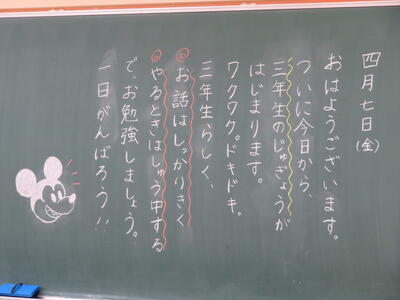 四月七日(金)
おはようございます。
ついに今日から、
三年生のじゅぎょうが
はじまります。
ワクワク。ドキドキ。
三年生らしく、
◎お話はしっかりきく
◎やるときはしゅう中する
で、お勉強しましょう。
一日がんばろう!!